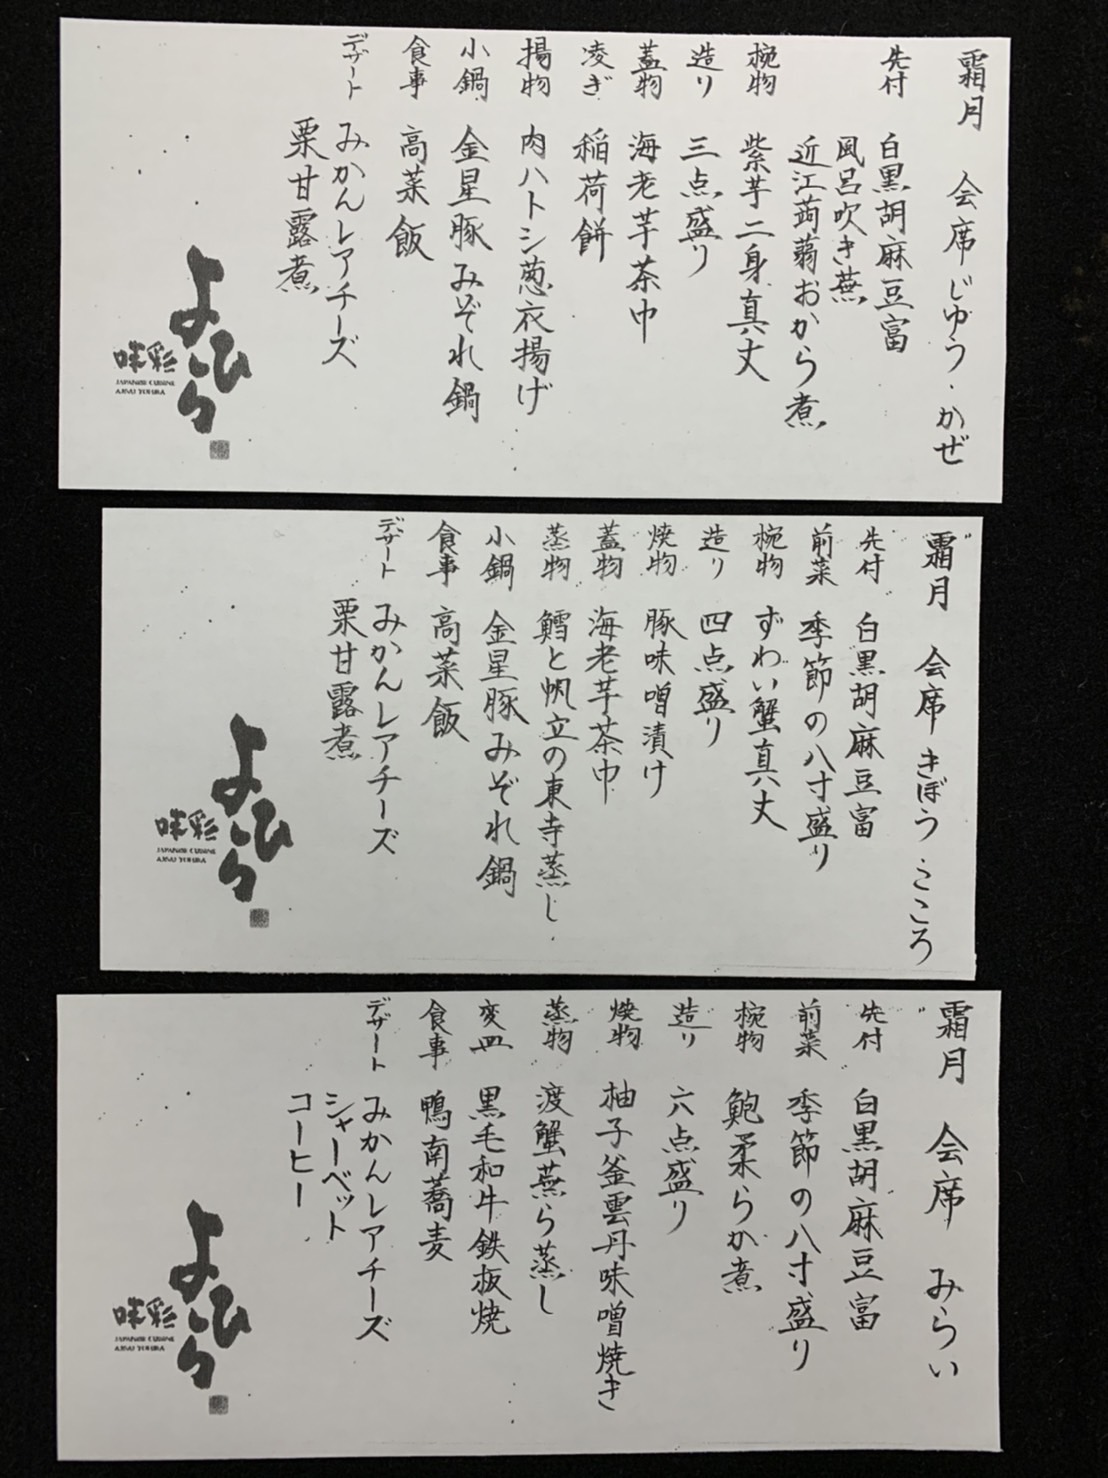 霜月 会席じゆう・かぜ
先付 白黒胡麻豆富
風呂吹き蕪
近江蒟蒻おから煮
椀物 紫芋二身真丈
造り 三点盛り
蓋物 海老芋茶巾
凌ぎ 稲荷餅
揚物 肉ハトシ葱衣揚げ
小鍋 金星豚みぞれ鍋
食事 高菜飯
デザート みかんレアチーズ
栗甘露煮
よひら
彩和
JAPANESE CUISINE
霜月 会席きぼう こころ
先付 白黒胡麻豆富
前菜 季節の八寸盛り
椀物 ずわい蟹真丈
造り 四点盛り
焼物 豚味噌漬け
蓋物 海老芋茶巾
蒸物 鱈と帆立の東寺蒸し
小鍋 金星豚みぞれ鍋
食事 高菜飯
デザート みかんレアチーズ
栗甘露煮
よひら
彩和
JAPANESE CUISINE
霜月 会席 みらい
先付 白黒胡麻豆富
前菜 季節の八寸盛り
椀物 鮑柔らか煮
造り 六点盛り
焼物 柚子釜雲丹味噌焼き
蒸物 渡蟹蕪ら蒸し
変皿 黒毛和牛鉄板焼
食事 鴨南蕎麦
デザート みかんレアチーズ
シャーベット
コーヒー
よひら
彩和
JAPANESE CUISINE